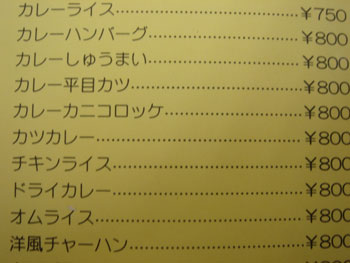 カレーライス……………………¥750
カレーハンバーグ………………¥800
カレーしゅうまい………………¥800
カレー平目カツ…………………¥800
カレーカニコロッケ……………¥800
カツカレー………………………¥800
チキンライス……………………¥800
ドライカレー……………………¥800
オムライス………………………¥800
洋風チャーハン…………………¥800